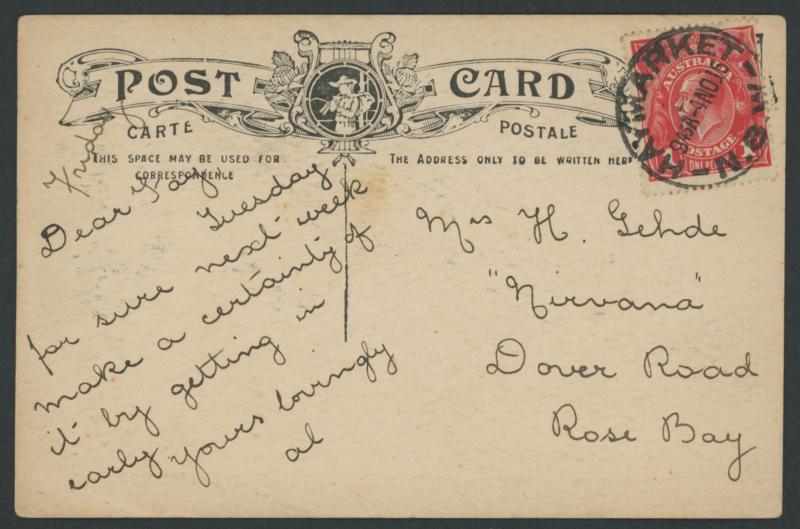 POST CARD
CARTE POSTALE
THIS SPACE MAY BE USED FOR
CORRESPONDENCE
THE ADDRESS ONLY TO BE WRITTEN HERE
HAYMARKET - N.S.W
AUSTRALIA
POSTAGE
ONE PENNY
Friday
Dear Fay
Tuesday
for sure next week
make a certainty of
it by getting in
early yours lovingly
al
Mrs H. Gehde
"Nirvana"
Dover Road
Rose Bay